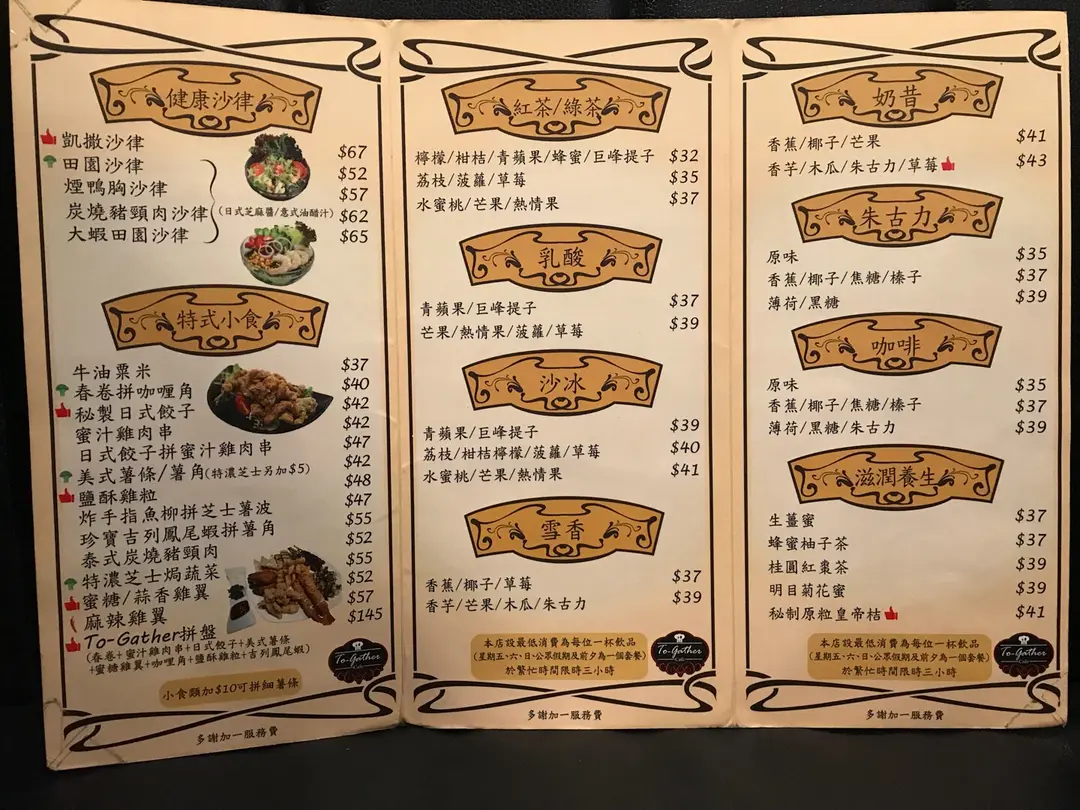 健康沙律
凱撒沙律 $67
田園沙律 $52
煙鴨胸沙律 $57
炭燒豬頸肉沙律 (日式芝麻醬/意式油醋汁) $62
大蝦田園沙律 $65
特式小食
牛油粟米 $37
春卷拼咖喱角 $40
秘製日式餃子 $42
蜜汁雞肉串 $42
日式餃子拼蜜汁雞肉串 $47
美式薯條/薯角(特濃芝士另加$5) $42
鹽酥雞粒 $48
炸手指魚柳拼芝士薯波 $47
珍寶吉列鳳尾蝦拼薯角 $55
泰式炭燒豬頸肉 $52
特濃芝士焗蔬菜 $55
蜜糖/蒜香雞翼 $52
麻辣雞翼 $57
To-Gather拼盤 $145
(春卷+蜜汁雞肉串+日式餃子+美式薯條
+蜜糖雞翼+咖喱角+鹽酥雞粒+吉列鳳尾蝦)
小食類加$10可拼細薯條
To-Gather
Cafe
多謝加一服務費
紅茶/綠茶
檸檬/柑桔/青蘋果/蜂蜜/巨峰提子 $32
荔枝/菠蘿/草莓 $35
水蜜桃/芒果/熱情果 $37
乳酸
青蘋果/巨峰提子 $37
芒果/熱情果/菠蘿/草莓 $39
沙冰
青蘋果/巨峰提子 $39
荔枝/柑桔檸檬/菠蘿/草莓 $40
水蜜桃/芒果/熱情果 $41
雪香
香蕉/椰子/草莓 $37
香芋/芒果/木瓜/朱古力 $39
本店設最低消費為每位一杯飲品
(星期五、六、日、公眾假期及前夕為一個套餐)
於繁忙時間限時三小時
To-Gather
Cafe
多謝加一服務費
奶昔
香蕉/椰子/芒果 $41
香芋/木瓜/朱古力/草莓 $43
朱古力
原味 $35
香蕉/椰子/焦糖/榛子 $37
薄荷/黑糖 $39
咖啡
原味 $35
香蕉/椰子/焦糖/榛子 $37
薄荷/黑糖/朱古力 $39
滋潤養生
生薑蜜 $37
蜂蜜柚子茶 $37
桂圓紅棗茶 $39
明目菊花蜜 $39
秘制原粒皇帝桔 $41
本店設最低消費為每位一杯飲品
(星期五、六、日、公眾假期及前夕為一個套餐)
於繁忙時間限時三小時
To-Gather
Cafe
多謝加一服務費